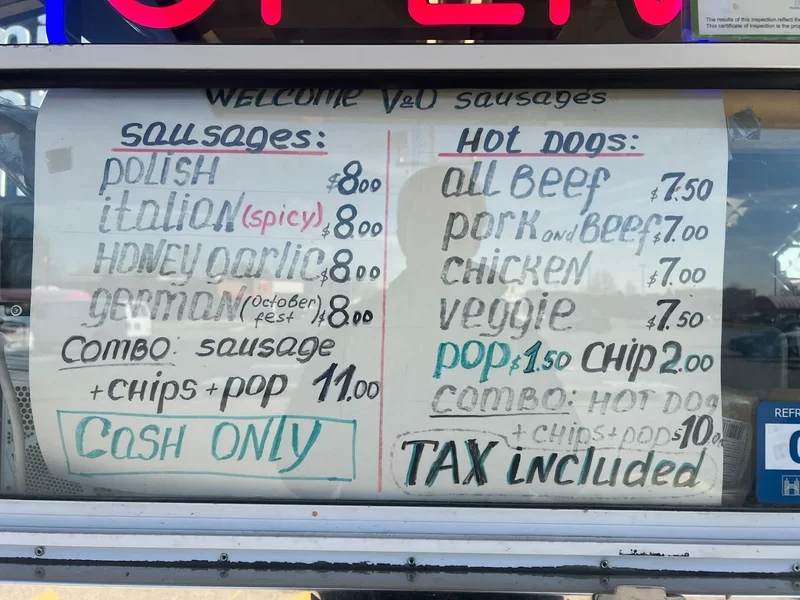 OPEN
The results of this inspection reflect the
This certificate of inspection is the pro
WELCOME V&O sausages
sausages:
POLISH $8.00
italian (spicy) $8.00
HONEY garlic $8.00
german (October fest) $8.00
Combo: sausage
+ CHIPS + pop 11.00
CASH ONLY
HOt DOgs:
all Beef $7.50
pork and Beef $7.00
CHICKEN $7.00
veggie $7.50
pop $1.50 CHIP 2.00
COMBO: HOT DOG
+ CHIPS + pop $10.0
TAX included
REFR